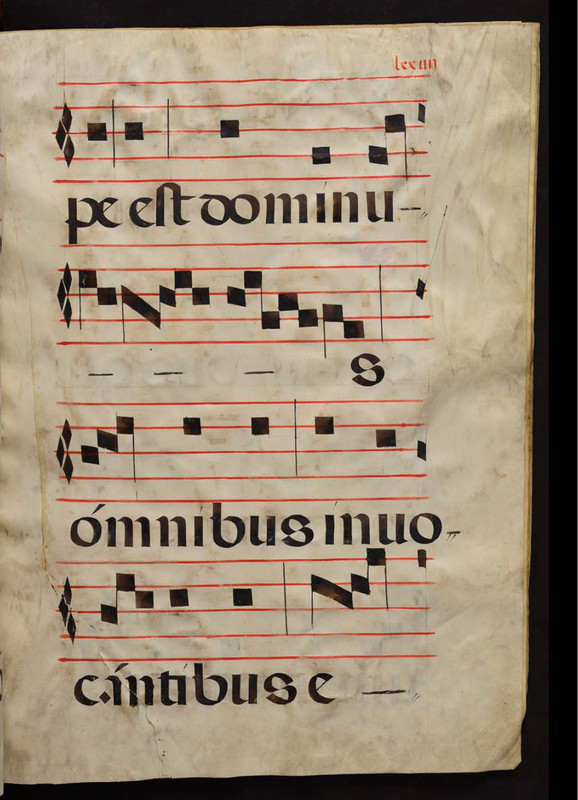 lxxiiii
pe est dominu-
s
ómnibus inuo-
cántibus e